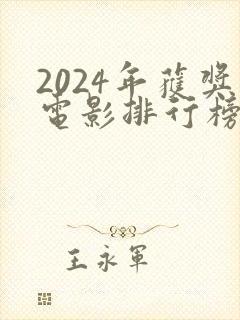 2024年獲獎
電影排行榜
王永軍